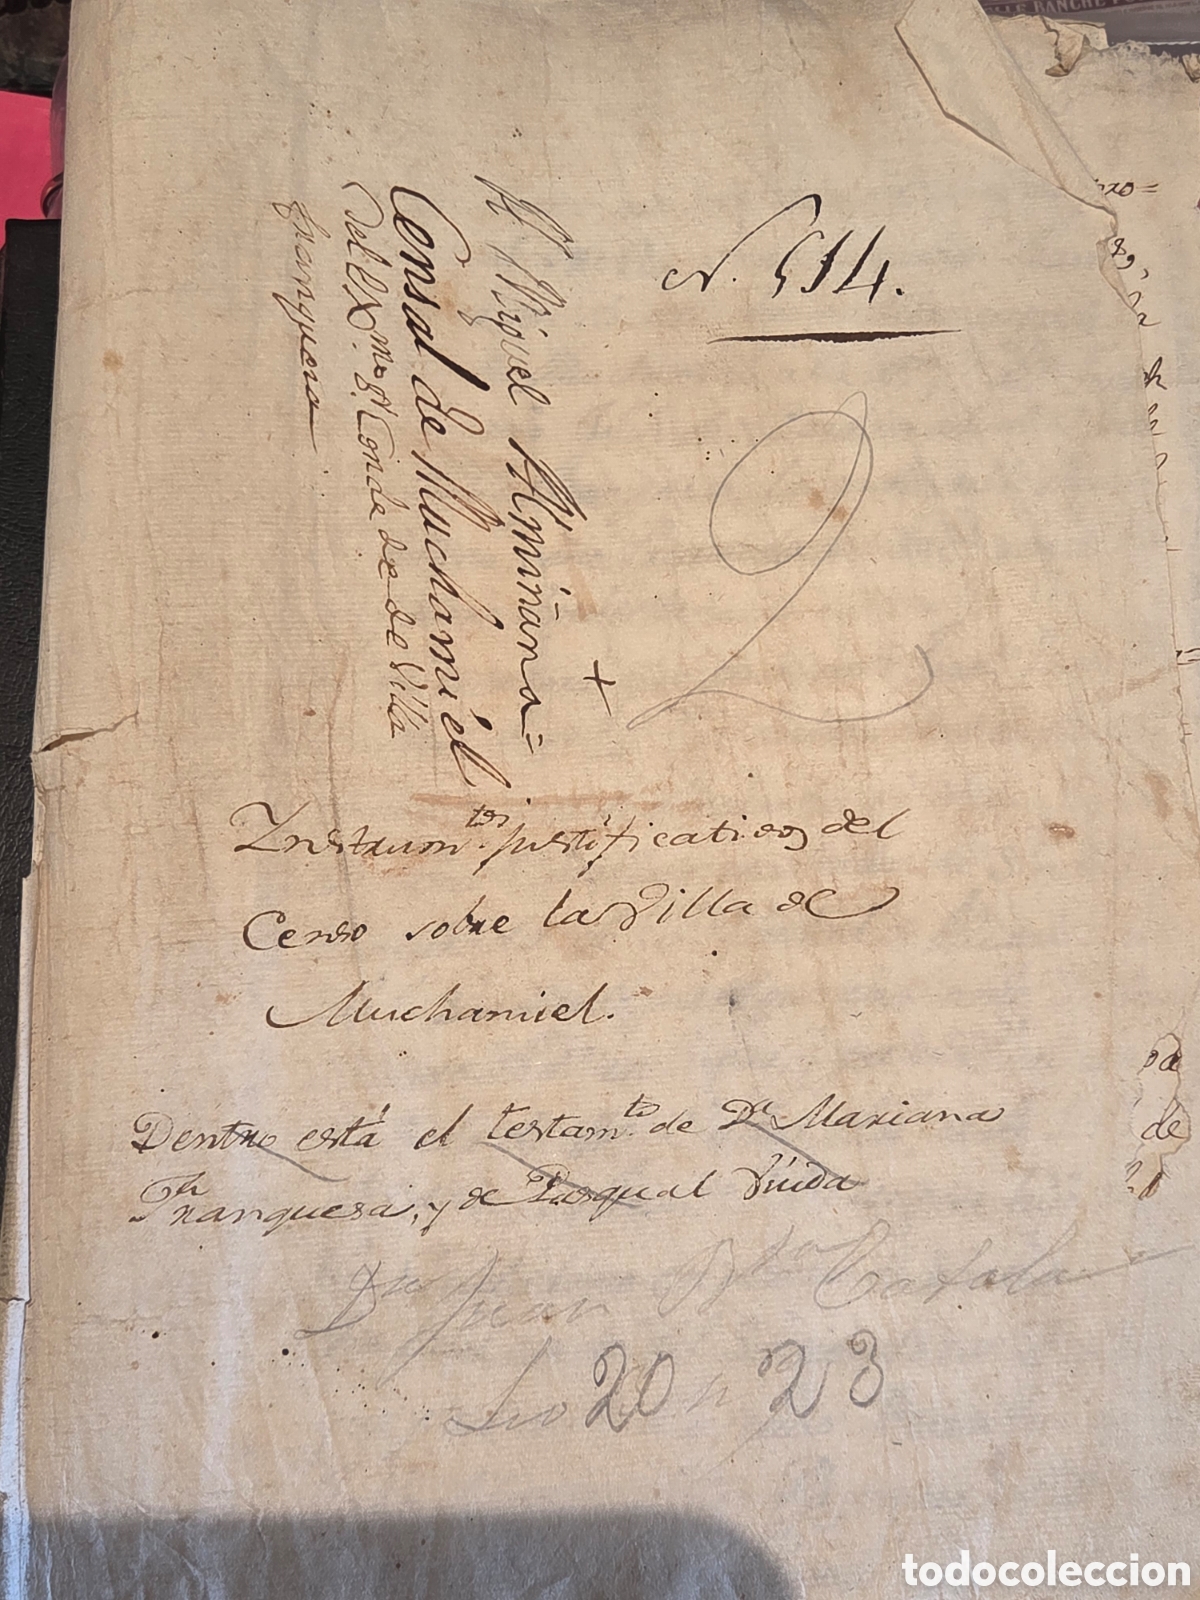 N. 514.
Miguel Almiñana=
Censal de Muchamiel
Del Ex.mo S.r Conde de de Villa
franqueza
+
2
Ynstrum.tos justificativos del
Censo sobre la Villa de
Muchamiel.
Dentro está el testam.to de D.a Mariana
Franquesa, y de Pasqual Viuda
Juan B.ta Catala
20 n 23
de
todocoleccion